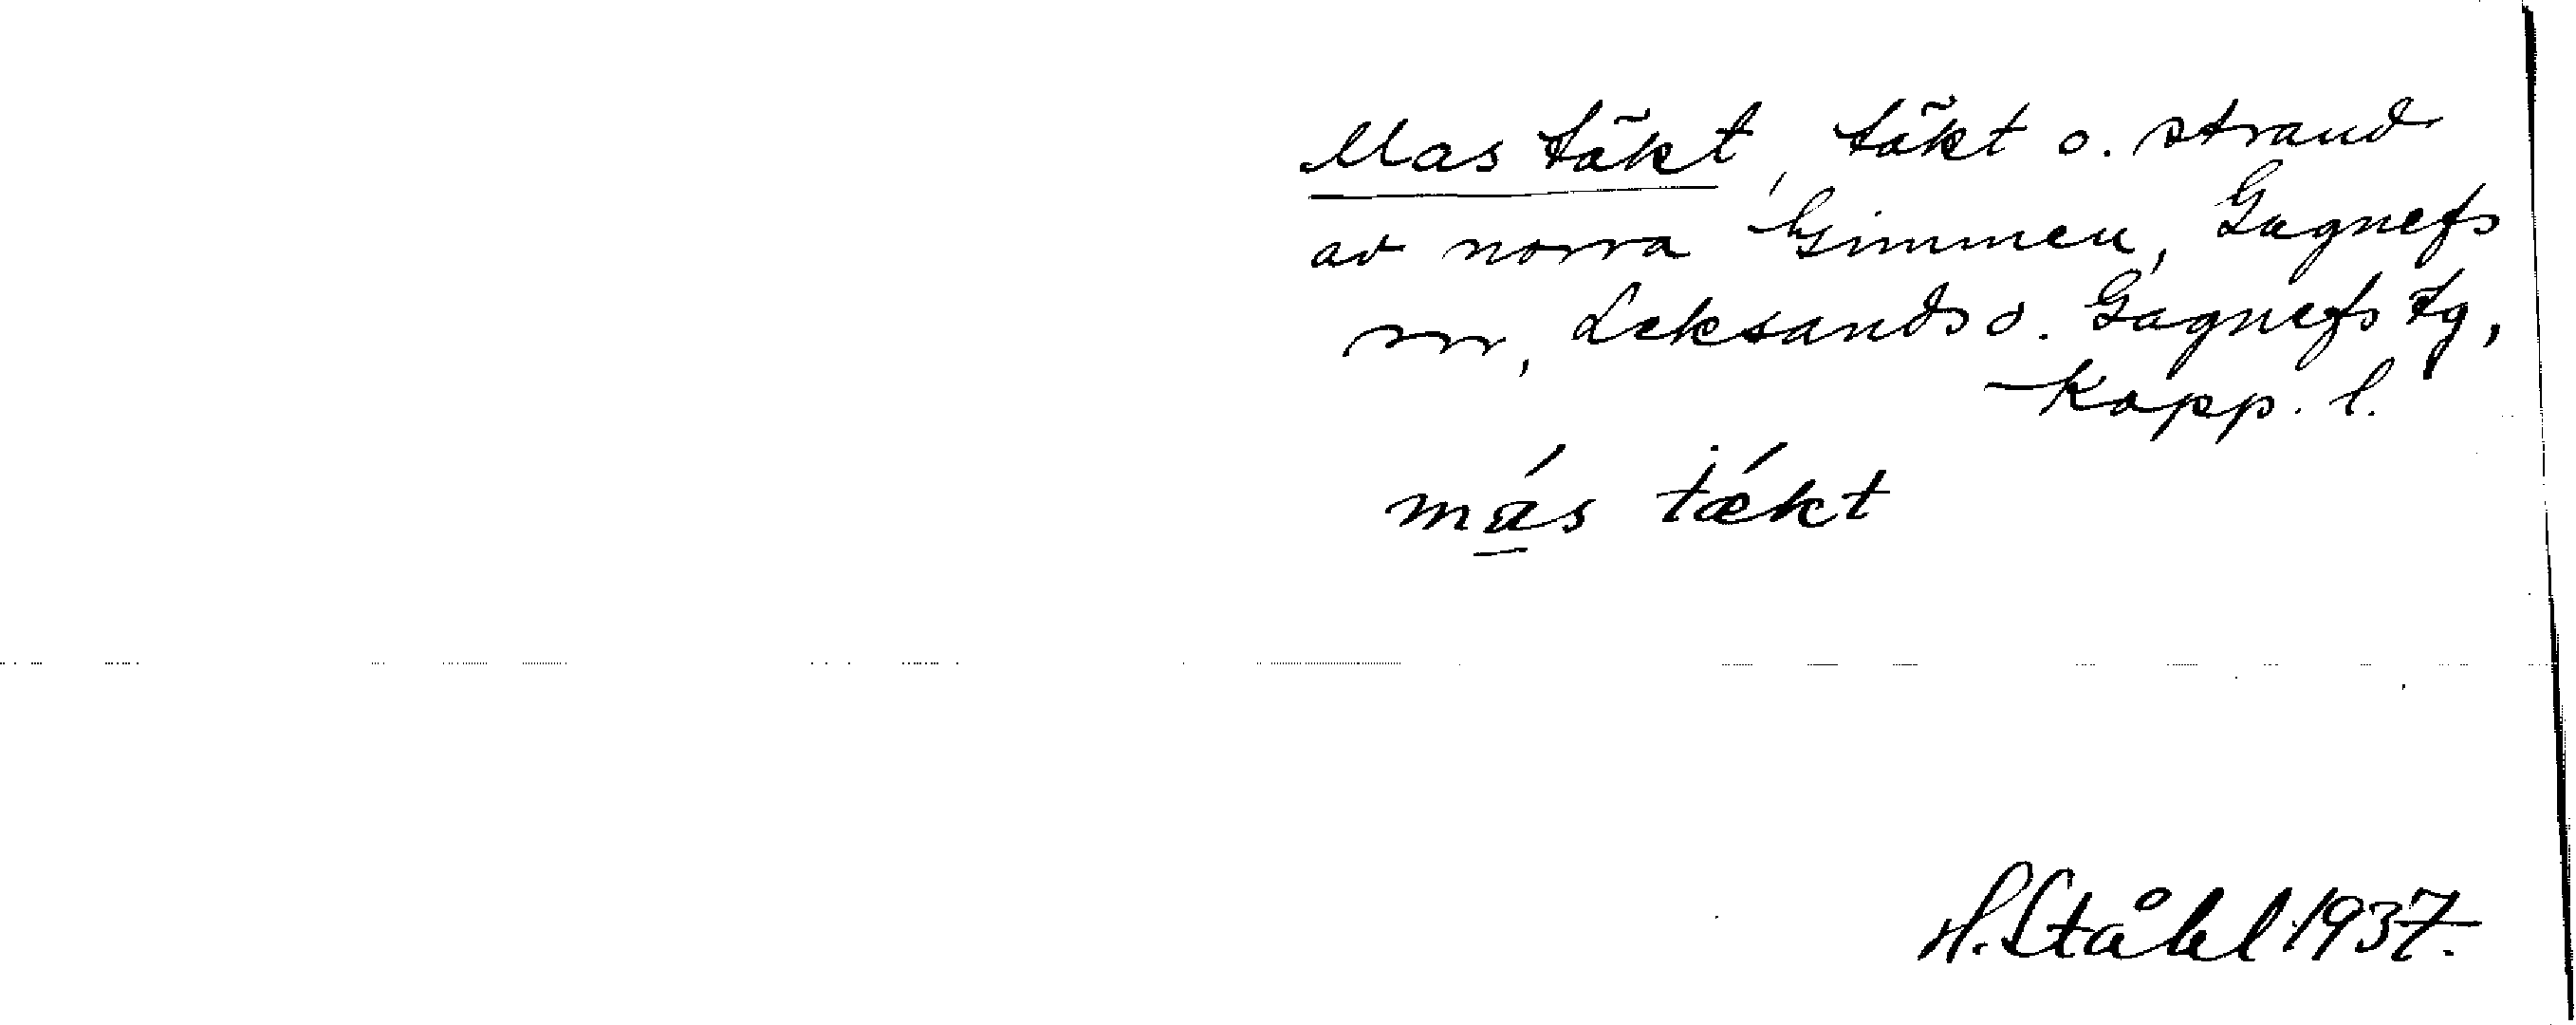 Mas täkt, täkt o. strand
av norra Gimmen, Gagnefs
sn, Leksands o. Gagnefs tg,
Kopp. l.
más tǽkt
H. Ståhl 1937.